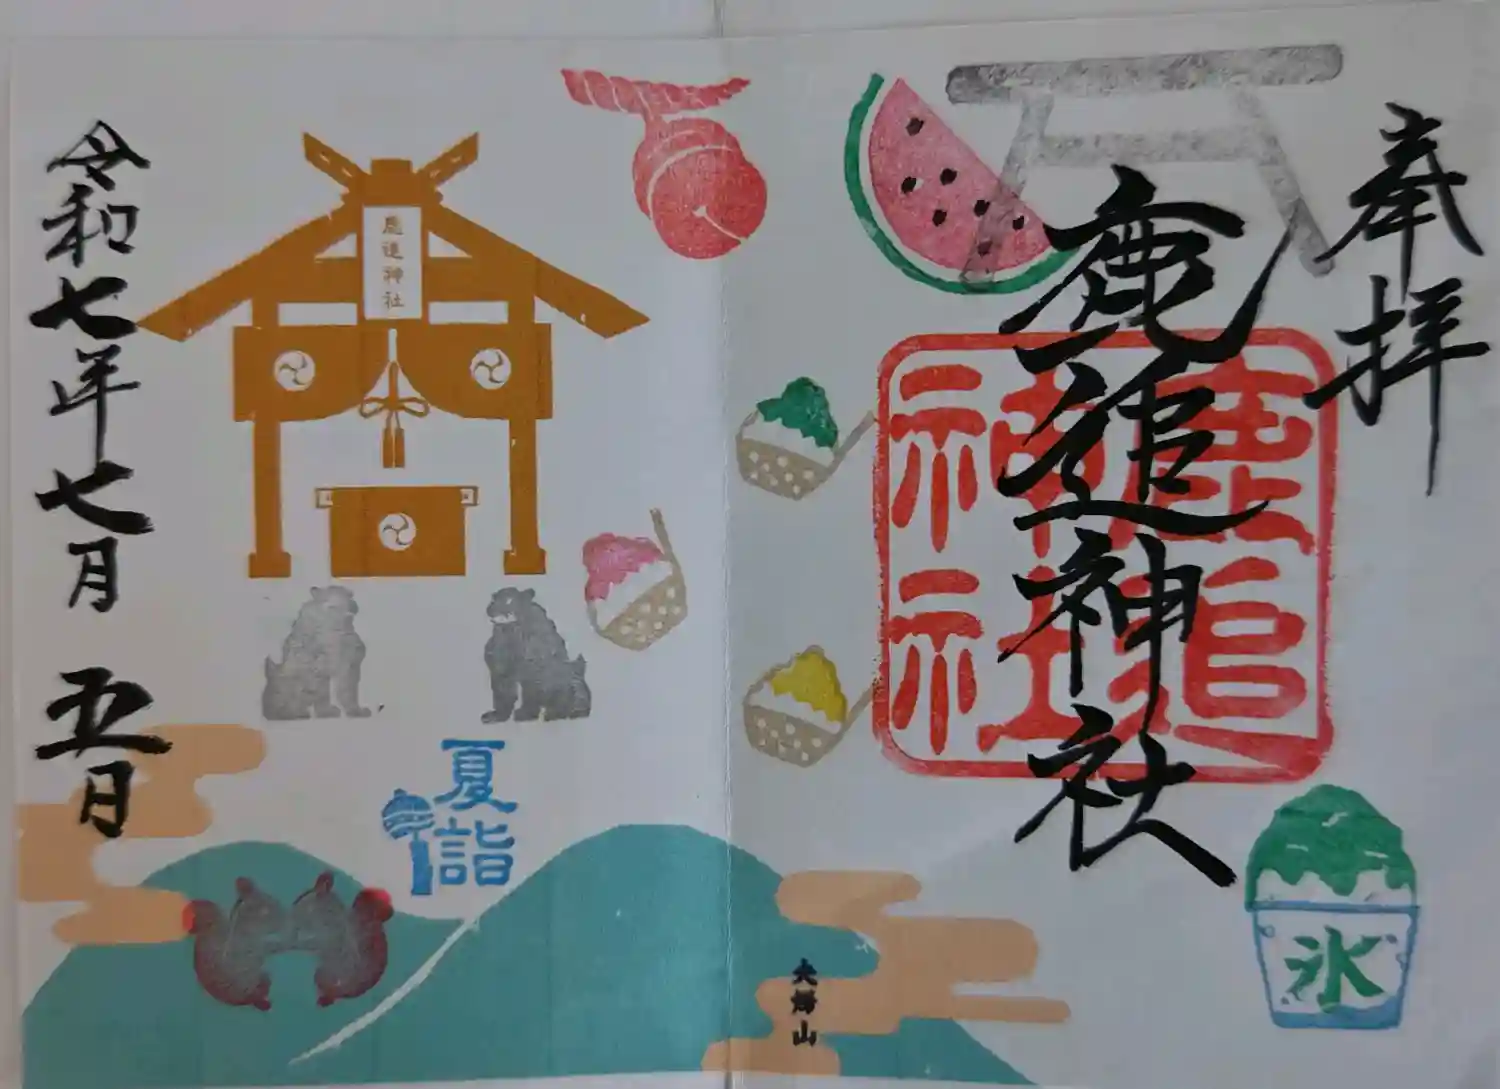 奉拝
鹿追神社
鹿追
神社
氷
夫婦山
鹿追神社
夏詣
令和七年七月五日